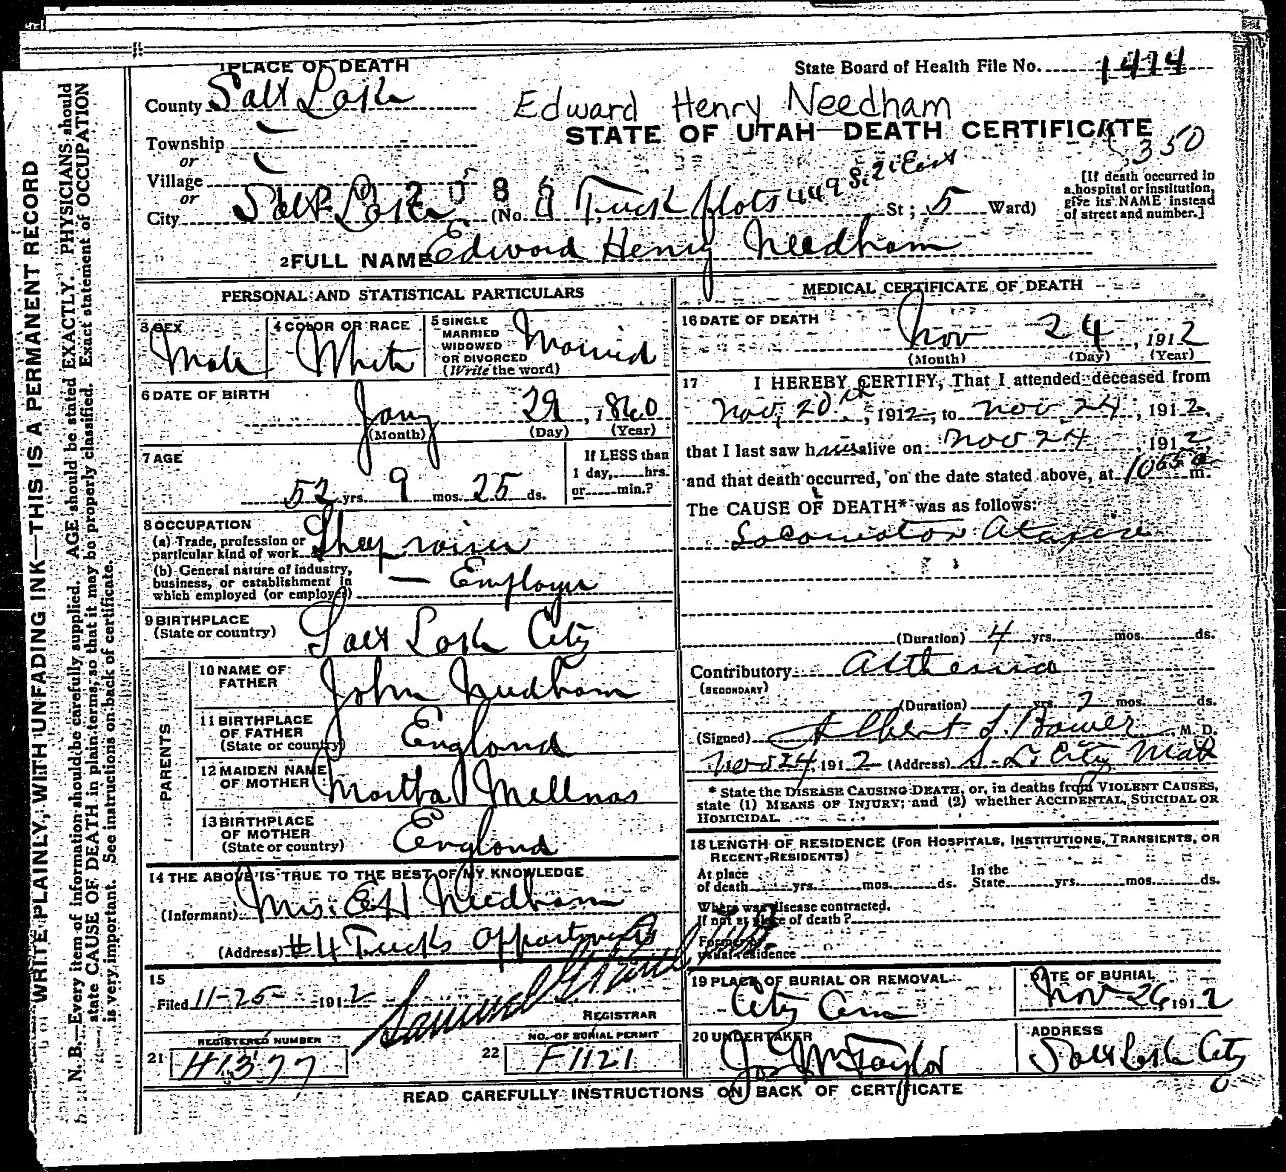 1 PLACE OF DEATH
State Board of Health File No. 1414
County Salt Lake
Edward Henry Needham
STATE OF UTAH—DEATH CERTIFICATE
350
Township
or
Village
or
City Salt Lake
2086
(No. 4 Tuck flots 449 So 2 East St; 5 Ward)
[If death occurred in
a hospital or institution,
give its NAME instead
of street and number.]
2 FULL NAME Edward Henry Needham
PERSONAL AND STATISTICAL PARTICULARS
3 SEX
Male
4 COLOR OR RACE
White
5 SINGLE
MARRIED
WIDOWED
OR DIVORCED
(Write the word)
Married
6 DATE OF BIRTH
Jany 29, 1860
(Month) (Day) (Year)
7 AGE
52 yrs. 9 mos. 25 ds.
If LESS than
1 day, hrs.
or min.?
8 OCCUPATION
(a) Trade, profession or
particular kind of work Sheep raiser
(b) General nature of industry,
business, or establishment in
which employed (or employer) — Employer
9 BIRTHPLACE
(State or country) Salt Lake City
PARENTS
10 NAME OF
FATHER John Needham
11 BIRTHPLACE
OF FATHER
(State or country) England
12 MAIDEN NAME
OF MOTHER Martha Mellnas
13 BIRTHPLACE
OF MOTHER
(State or country) England
14 THE ABOVE IS TRUE TO THE BEST OF MY KNOWLEDGE
(Informant) Mrs. E H Needham
(Address) #4 Tucks
15
Filed 11-25- 1912
Samuel G
REGISTRAR
REGISTERED NUMBER
21 H1377
NO. OF BURIAL PERMIT
22 F1121
MEDICAL CERTIFICATE OF DEATH
16 DATE OF DEATH
Nov 24, 1912
(Month) (Day) (Year)
17 I HEREBY CERTIFY, That I attended deceased from
Nov, 20th, 1912, to Nov 24, 1912,
that I last saw him alive on Nov 24 1912
and that death occurred, on the date stated above, at 10 55 a m.
The CAUSE OF DEATH* was as follows:
Locomotor Ataxia
(Duration) 4 yrs. mos. ds.
Contributory Asthenia
(SECONDARY)
(Duration) yrs. 2 mos. ds.
(Signed) Albert L. Bower M. D.
Nov 24, 1912 (Address) S. L. City
* State the DISEASE CAUSING DEATH, or, in deaths from VIOLENT CAUSES,
state (1) MEANS OF INJURY; and (2) whether ACCIDENTAL, SUICIDAL OR
HOMICIDAL.
18 LENGTH OF RESIDENCE (FOR HOSPITALS, INSTITUTIONS, TRANSIENTS, OR
RECENT RESIDENTS)
At place
of death yrs. mos. ds.
In the
State yrs. mos. ds.
Where was disease contracted.
If not at place of death?
Former or
usual residence
19 PLACE OF BURIAL OR REMOVAL
City Cem
DATE OF BURIAL
Nov 26, 1912
20 UNDERTAKER
Jos Wm Taylor
ADDRESS
Salt Lake City
READ CAREFULLY INSTRUCTIONS ON BACK OF CERTIFICATE
WRITE PLAINLY, WITH UNFADING INK—THIS IS A PERMANENT RECORD
N. B.—Every item of information should be carefully supplied. AGE should be stated EXACTLY. PHYSICIANS should
state CAUSE OF DEATH in plain terms, so that it may be properly classified. Exact statement of OCCUPATION
is very important. See instructions on back of certificate.